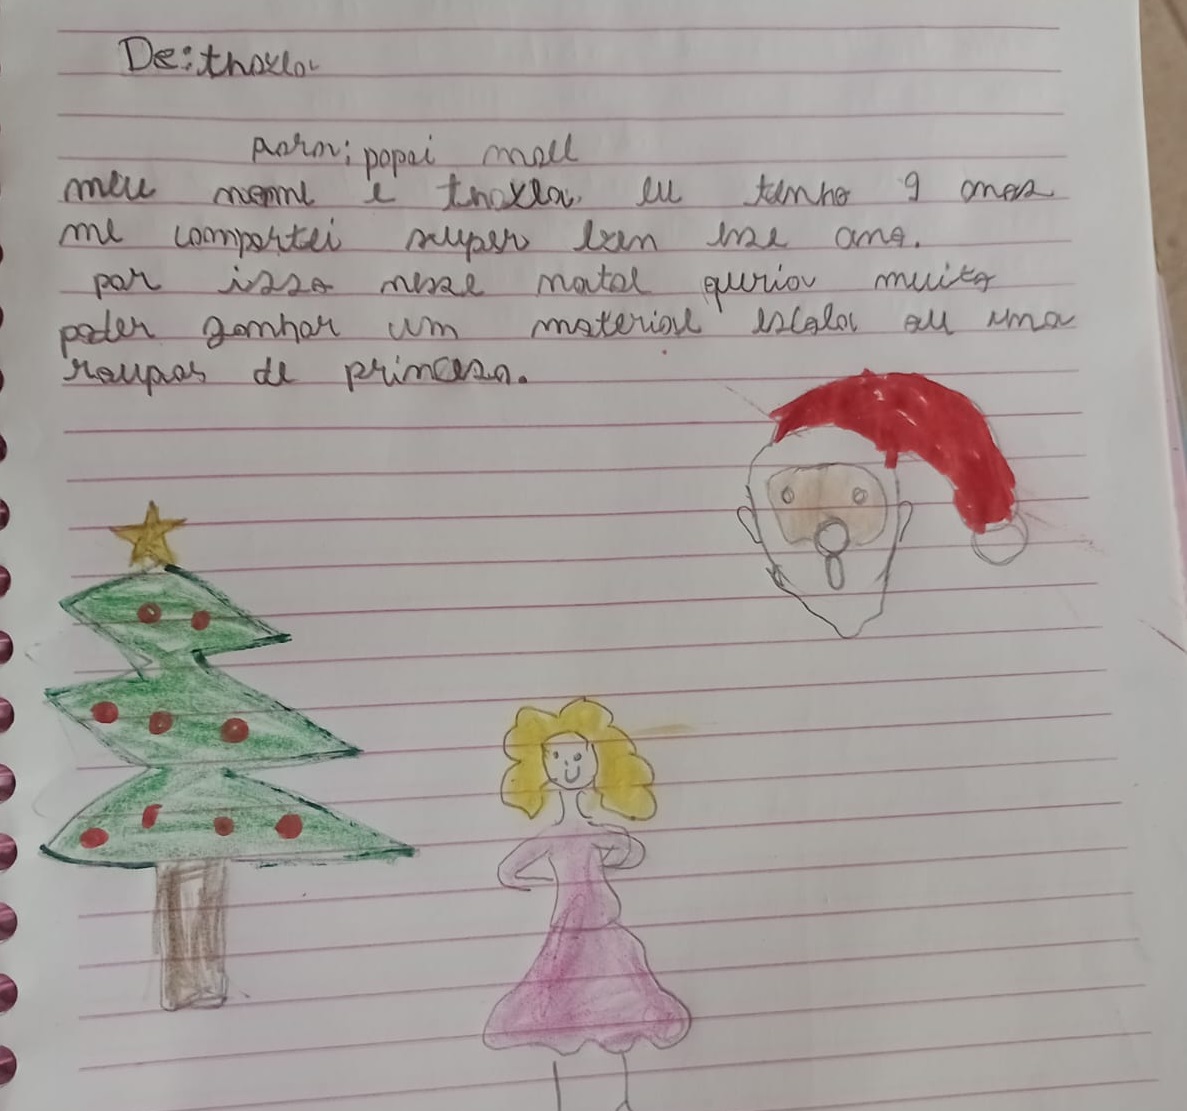 De: thaxla
para; papai noel
meu nome e thaxla. eu tenho 9 anos
me comportei super bem esse ano.
por isso nesse natal queria muito
poder ganhar um material escola ou uma
roupas de princesa.